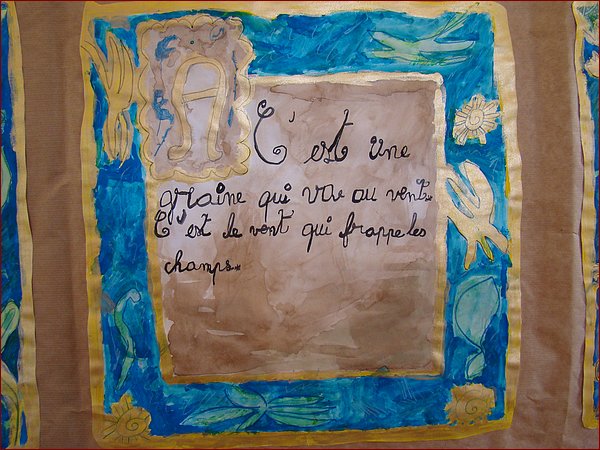 A
C'est une
graine qui va au vent.
C'est le vent qui frappe les
champs.